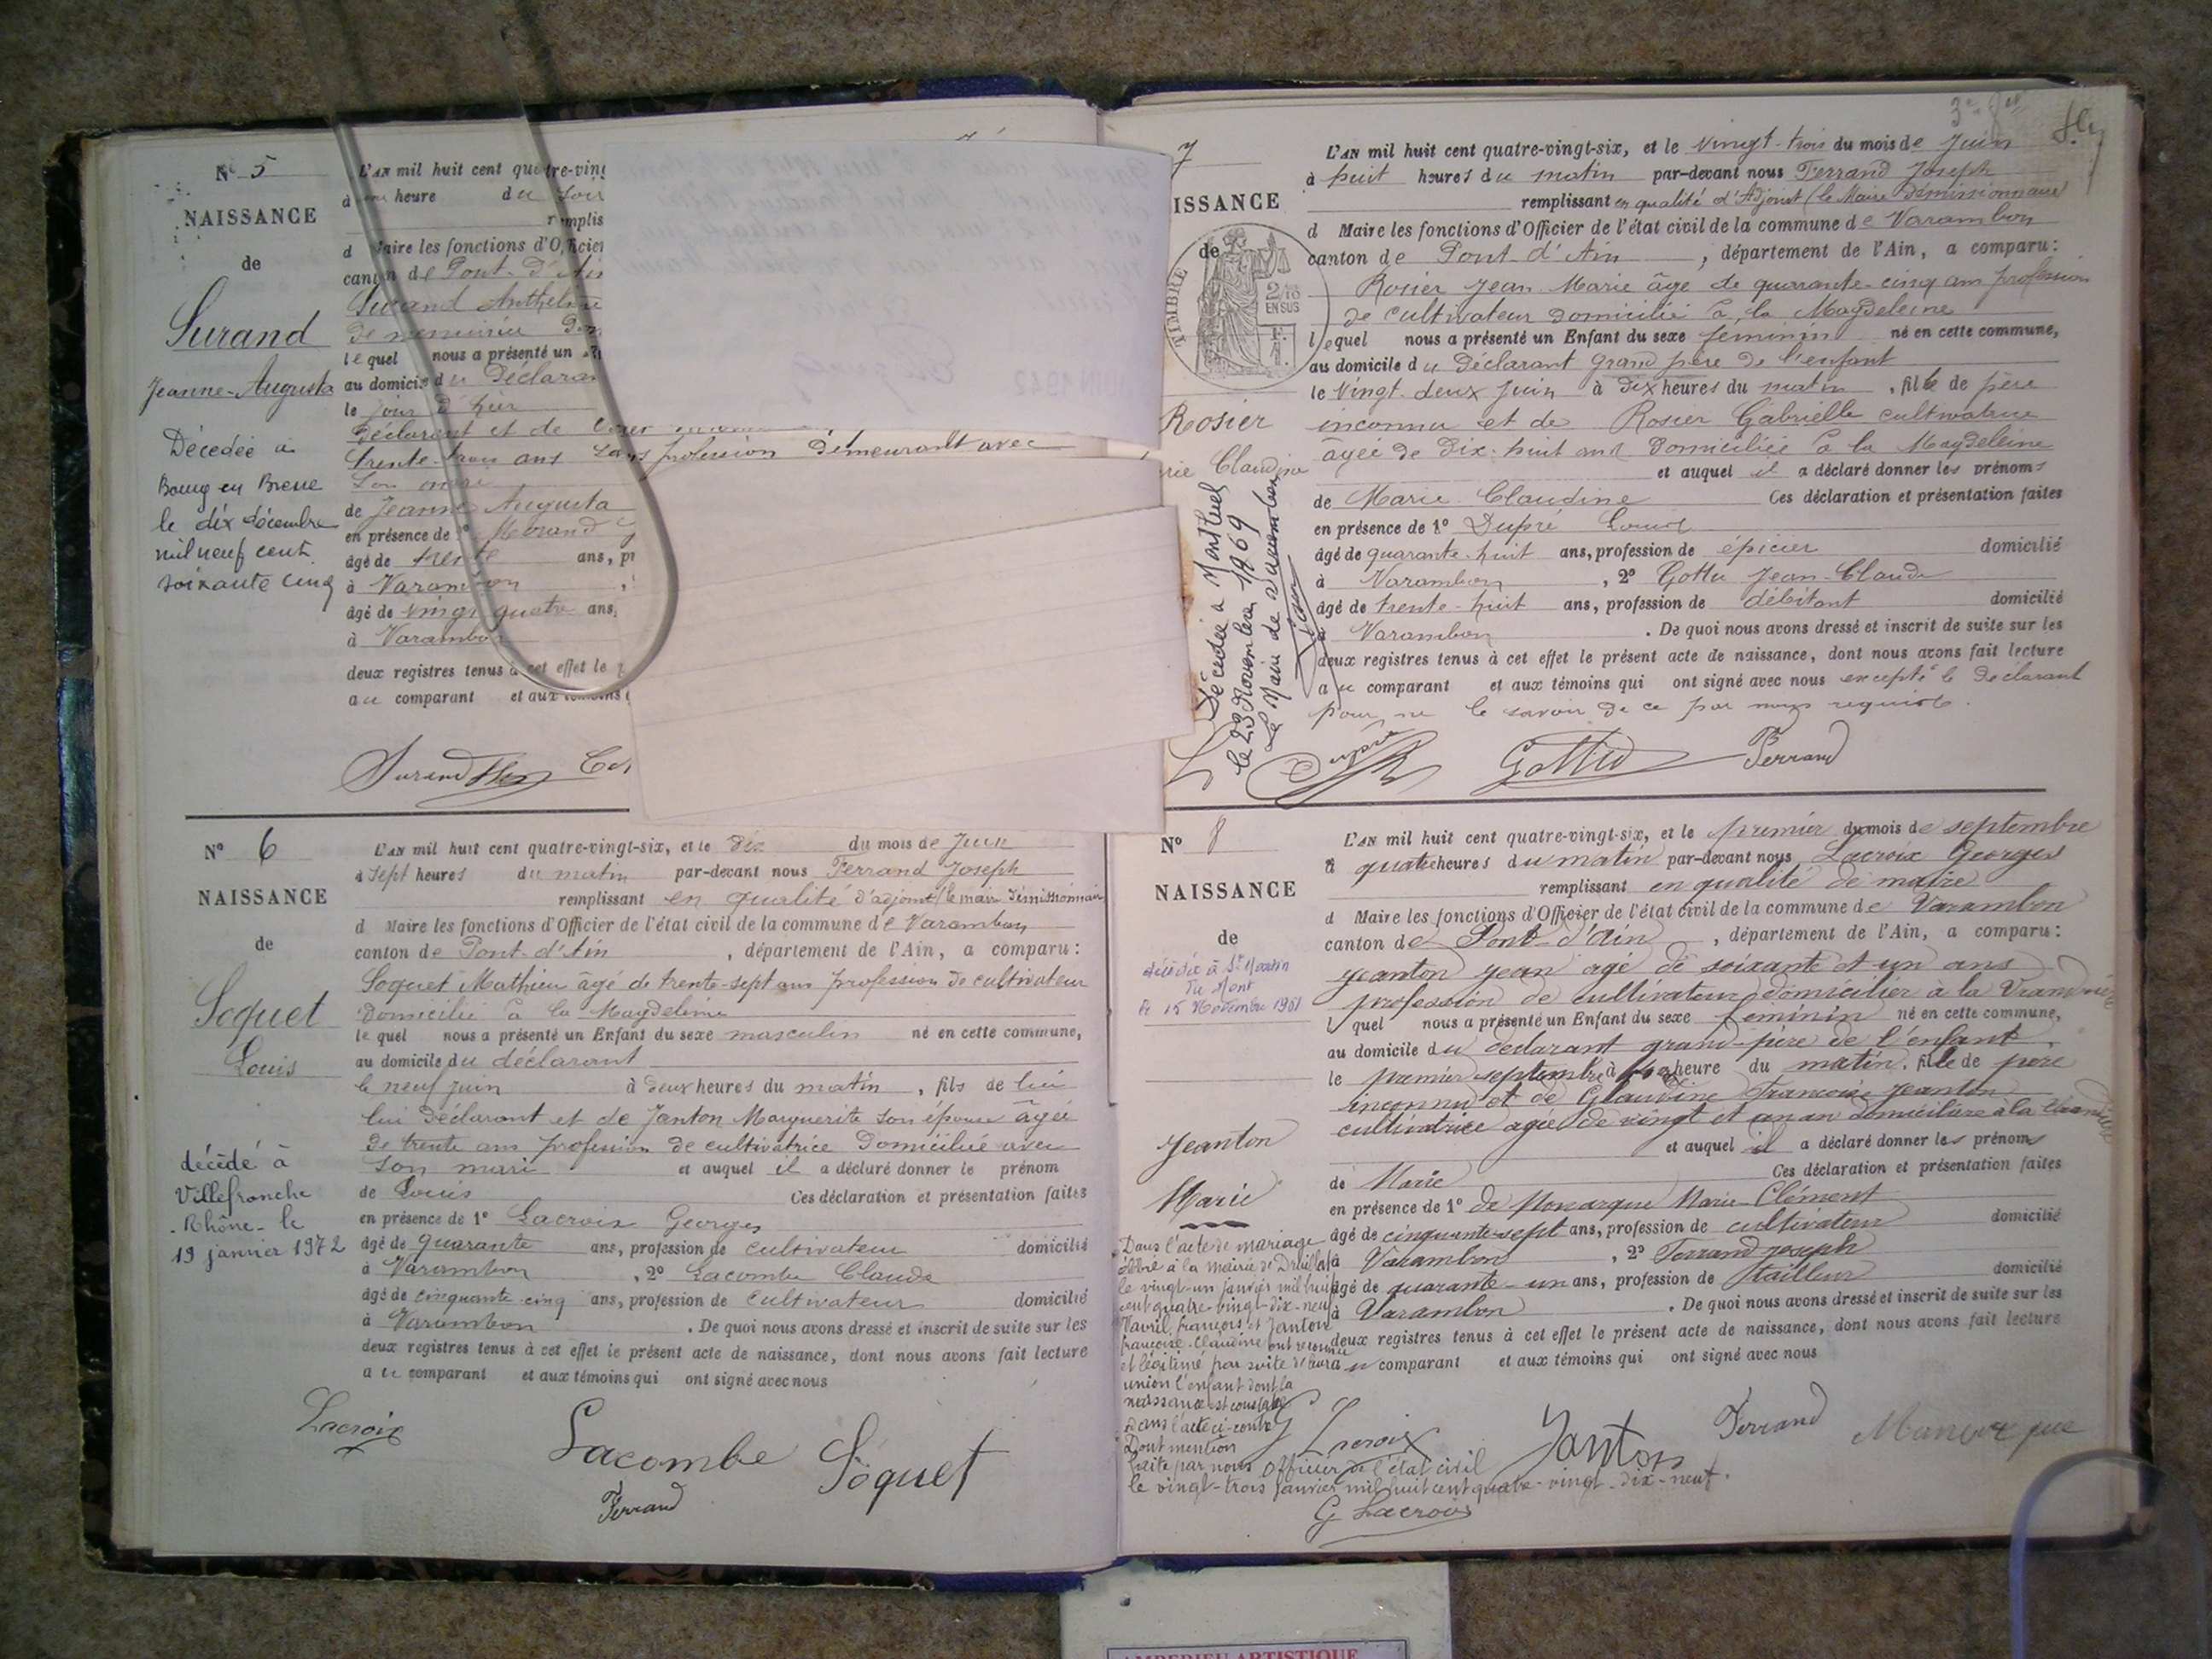 N° 5
NAISSANCE
de
Surand
Jeanne-Augusta
Décédée à
Bourg en Bresse
le dix décembre
mil neuf cent
soixante cinq
L'AN mil huit cent quatre-ving
à heure du soir
remplis
d Maire les fonctions d'Officier
canton de Pont-d'Ain
Surand Anthelme
de menuisier dom
lequel nous a présenté un
au domicile du Déclaran
le jour d'hier
Déclarant et de
trente-trois ans sans profession demeurant avec
Son mari
de Jeanne Augusta
en présence de 1° Morand
âgé de trente ans, pr
à Varambon
âgé de vingt quatre ans,
à Varambon
deux registres tenus à cet effet le p
au comparant et aux témoins
Surand
N° 6
NAISSANCE
de
Soquet
Louis
décédé à
Villefranche
-Rhône- le
19 janvier 1972
L'AN mil huit cent quatre-vingt-six, et le dix du mois de Juin
à sept heures du matin par-devant nous Ferrand Joseph
remplissant en qualité d'adjoint (le maire démissionnaire
d Maire les fonctions d'Officier de l'état civil de la commune de Varambon
canton de Pont-d'Ain, département de l'Ain, a comparu:
Soquet Mathieu âgé de trente-sept ans profession de cultivateur
Domicilié à la Magdeleine
lequel nous a présenté un Enfant du sexe masculin né en cette commune,
au domicile du déclarant
le neuf juin à deux heures du matin, fils de lui
lui Déclarant et de Janton Marguerite son épouse âgée
de trente ans profession de cultivatrice Domiciliée avec
son mari et auquel il a déclaré donner le prénom
de Louis Ces déclaration et présentation faites
en présence de 1° Lacroix Georges
âgé de quarante ans, profession de cultivateur domicilié
à Varambon, 2° Lacombe Claude
âgé de cinquante-cinq ans, profession de cultivateur domicilié
à Varambon. De quoi nous avons dressé et inscrit de suite sur les
deux registres tenus à cet effet le présent acte de naissance, dont nous avons fait lecture
au comparant et aux témoins qui ont signé avec nous
Lacroix
Lacombe Soquet
Ferrand
7
ISSANCE
de
TIMBRE
ENSUS
Rosier
rie Claudine
Décédée à Montluel
le 23 Novembre 1969
Le Maire de Varambon
L'AN mil huit cent quatre-vingt-six, et le vingt-trois du mois de Juin
à huit heures du matin par-devant nous Ferrand Joseph
remplissant en qualité d'Adjoint (le Maire démissionnaire)
d Maire les fonctions d'Officier de l'état civil de la commune de Varambon
canton de Pont-d'Ain, département de l'Ain, a comparu:
Rosier Jean-Marie âge de quarante-cinq ans profession
de cultivateur domicilié à la Magdeleine
lequel nous a présenté un Enfant du sexe féminin né en cette commune,
au domicile du Déclarant grand père de l'enfant
le vingt-deux juin à dix heures du matin, fille de père
inconnu et de Rosier Gabrielle cultivatrice
âgée de dix-huit ans domiciliée à la Magdeleine
et auquel il a déclaré donner les prénoms
de Marie Claudine Ces déclaration et présentation faites
en présence de 1° Dupré Louis
âgé de quarante-huit ans, profession de épicier domicilié
à Varambon, 2° Gottu Jean-Claude
âgé de trente-huit ans, profession de débitant domicilié
à Varambon. De quoi nous avons dressé et inscrit de suite sur les
deux registres tenus à cet effet le présent acte de naissance, dont nous avons fait lecture
au comparant et aux témoins qui ont signé avec nous excepté le Déclarant
pour ne le savoir de ce par nous requis.
Dupré Ferrand
N° 8
NAISSANCE
de
décédée à St Martin
du Mont
le 15 Novembre 1961
Jeanton
Marie
Dans l'acte de mariage
célébré à la mairie de Druillat
le vingt-un janvier mil huit
cent quatre-vingt-dix-neuf
françois et Janton
françoise-Claudine ont reconnu
et légitimé par suite de leur
union l'enfant dont la
naissance est constatée
dans l'acte ci-contre
Dont mention
faite par nous Officier de l'état civil
le vingt-trois janvier mil huit cent quatre-vingt-dix-neuf.
G Lacroix
L'AN mil huit cent quatre-vingt-six, et le premier du mois de septembre
à quatre heures du matin par-devant nous Lacroix Georges
remplissant en qualité de maire
d Maire les fonctions d'Officier de l'état civil de la commune de Varambon
canton de Pont-d'Ain, département de l'Ain, a comparu:
Jeanton Jean agé de soixante et un ans
profession de cultivateur domicilier à la
lquel nous a présenté un Enfant du sexe féminin né en cette commune,
au domicile du déclarant grand-père de l'enfant
le premier septembre à heure du matin, fille de père
inconnu et de Glaudine Françoise Jeanton
cultivatrice agée de vingt et un an domicilière à la
et auquel il a déclaré donner les prénoms
de Marie Ces déclaration et présentation faites
en présence de 1° de Monarque Marie-Clément
âgé de cinquante-sept ans, profession de cultivateur domicilié
à Varambon, 2° Ferrand Joseph
âgé de quarante-un ans, profession de tailleur domicilié
à Varambon. De quoi nous avons dressé et inscrit de suite sur les
deux registres tenus à cet effet le présent acte de naissance, dont nous avons fait lecture
au comparant et aux témoins qui ont signé avec nous
Lacroix Janton Ferrand Manarque
AMBERIEU ARTISTIQUE